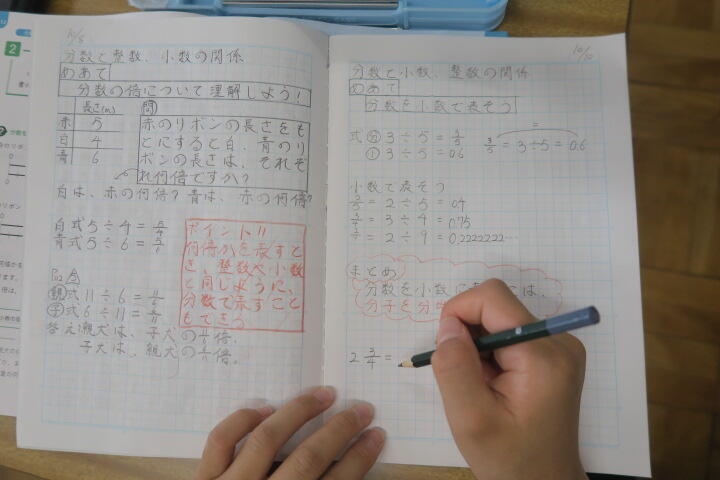 分数と整数、小数の関係
めあて
分数の倍について理解しよう!
長さ(m)
赤 5
白 4
青 6
問
赤のリボンの長さをも
とにすると白、青のリ
ボンの長さは、それぞ
れ何倍ですか?
白は、赤の何倍?青は、赤の何倍?
白式 5÷4=5/4
青式 5÷6=5/6
ポイント!!
何倍かを表すと
き、整数や小数
と同じように、
分数で表すこと
もできる
親式 11÷6=11/6
子式 6÷11=6/11
答え親犬は、子犬の11/6倍。
子犬は、親犬の6/11倍。
10/10
分数と小数、整数の関係
めあて
分数を小数で表そう
式 3÷5=3/5
3÷5=0.6
3/5=3÷5=0.6
小数で表そう
2/5=2÷5=0.4
=3÷4=0.75
=2÷9=0.2222222…
まとめ
分数を小数に
は、
分子を分
2 3/4=